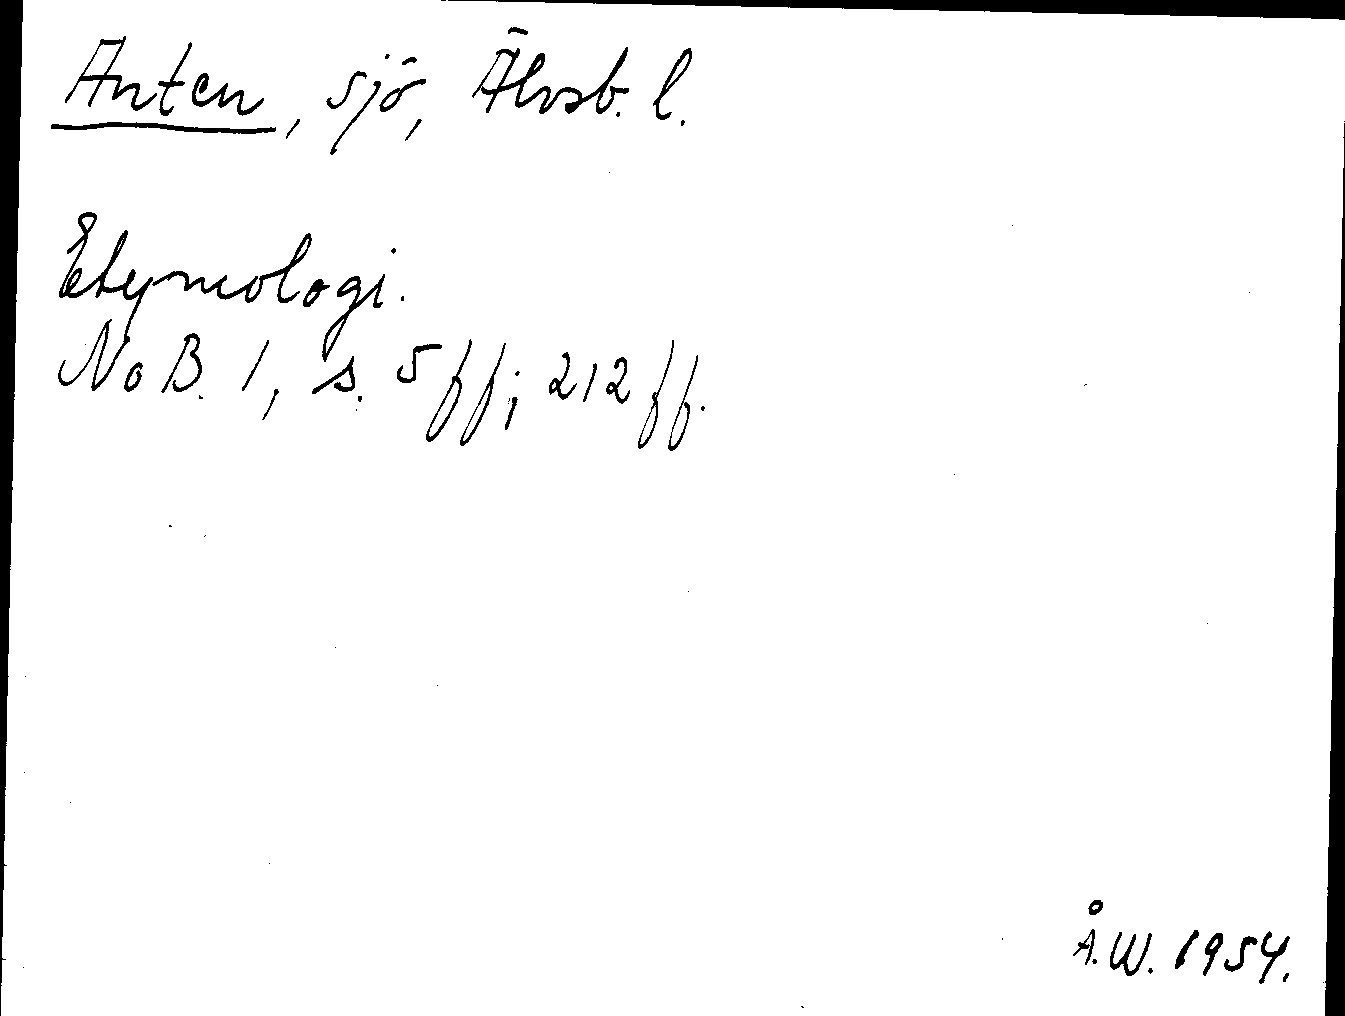 Anten, sjö, Älvsb. l.
Etymologi.
NoB. 1, s. 5 ff; 212 ff.
Å.W. 1954.